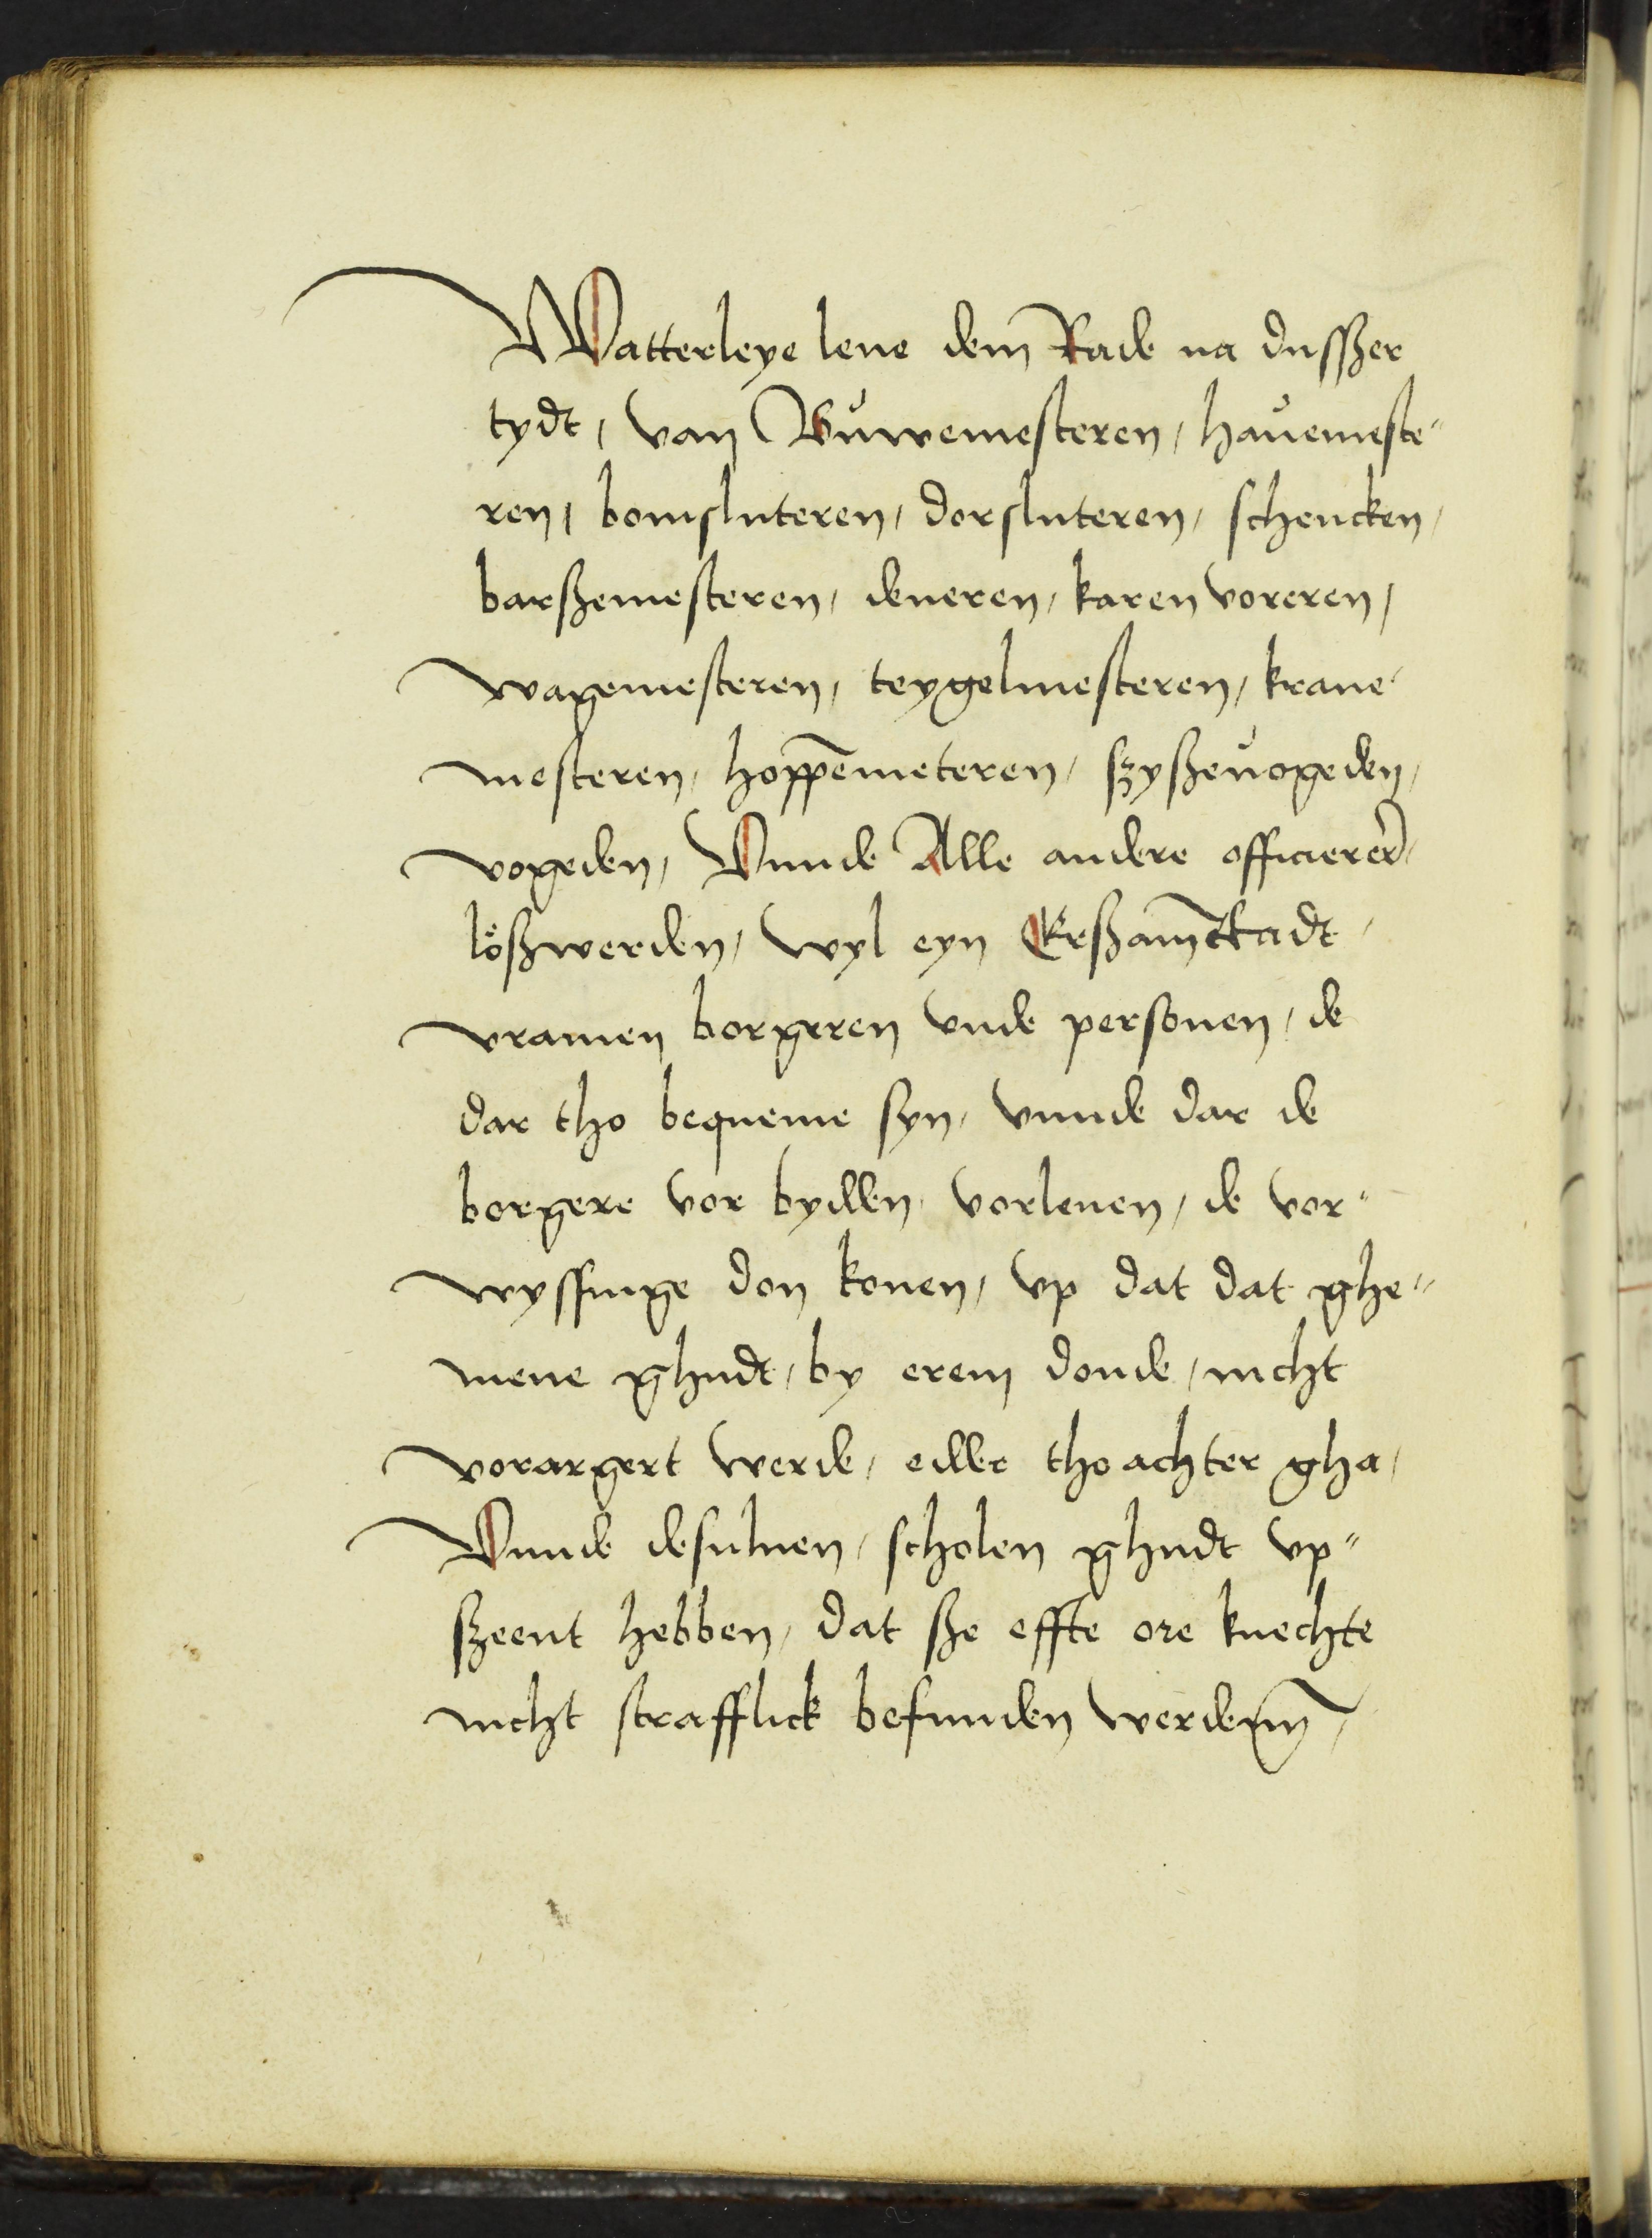 Watterleye lene dem Rade na dussßer
tydt / van Buͦwemesteren / hauͦemeste⸗
ren / bomsluteren / dorsluteren / schencken /
barßemesteren / deneren / karen voreren /
wagemesteren / teygelmesteren / krane⸗
mesteren / hoppēmeteren / szyßeuͦogeden /
vogeden / Vnnde Alle andere officierer̄ /
loͤßwerden / wyl eyn Erßam̄ Radt /
vramen borgeren vnde personen / de
dar tho bequeme syn / vnnde dar de
borgere vor bydden vorlenen / de vor⸗
wyssinge don konen / vp dat dat ghe⸗
mene ghudt / by erem donde / nicht
vorargert werde / edder tho achter gha /
Vnnde desuluen / scholen ghudt vp⸗
szeent hebben / dat sße effte ore knechte
nicht strafflick befunden werdenn /